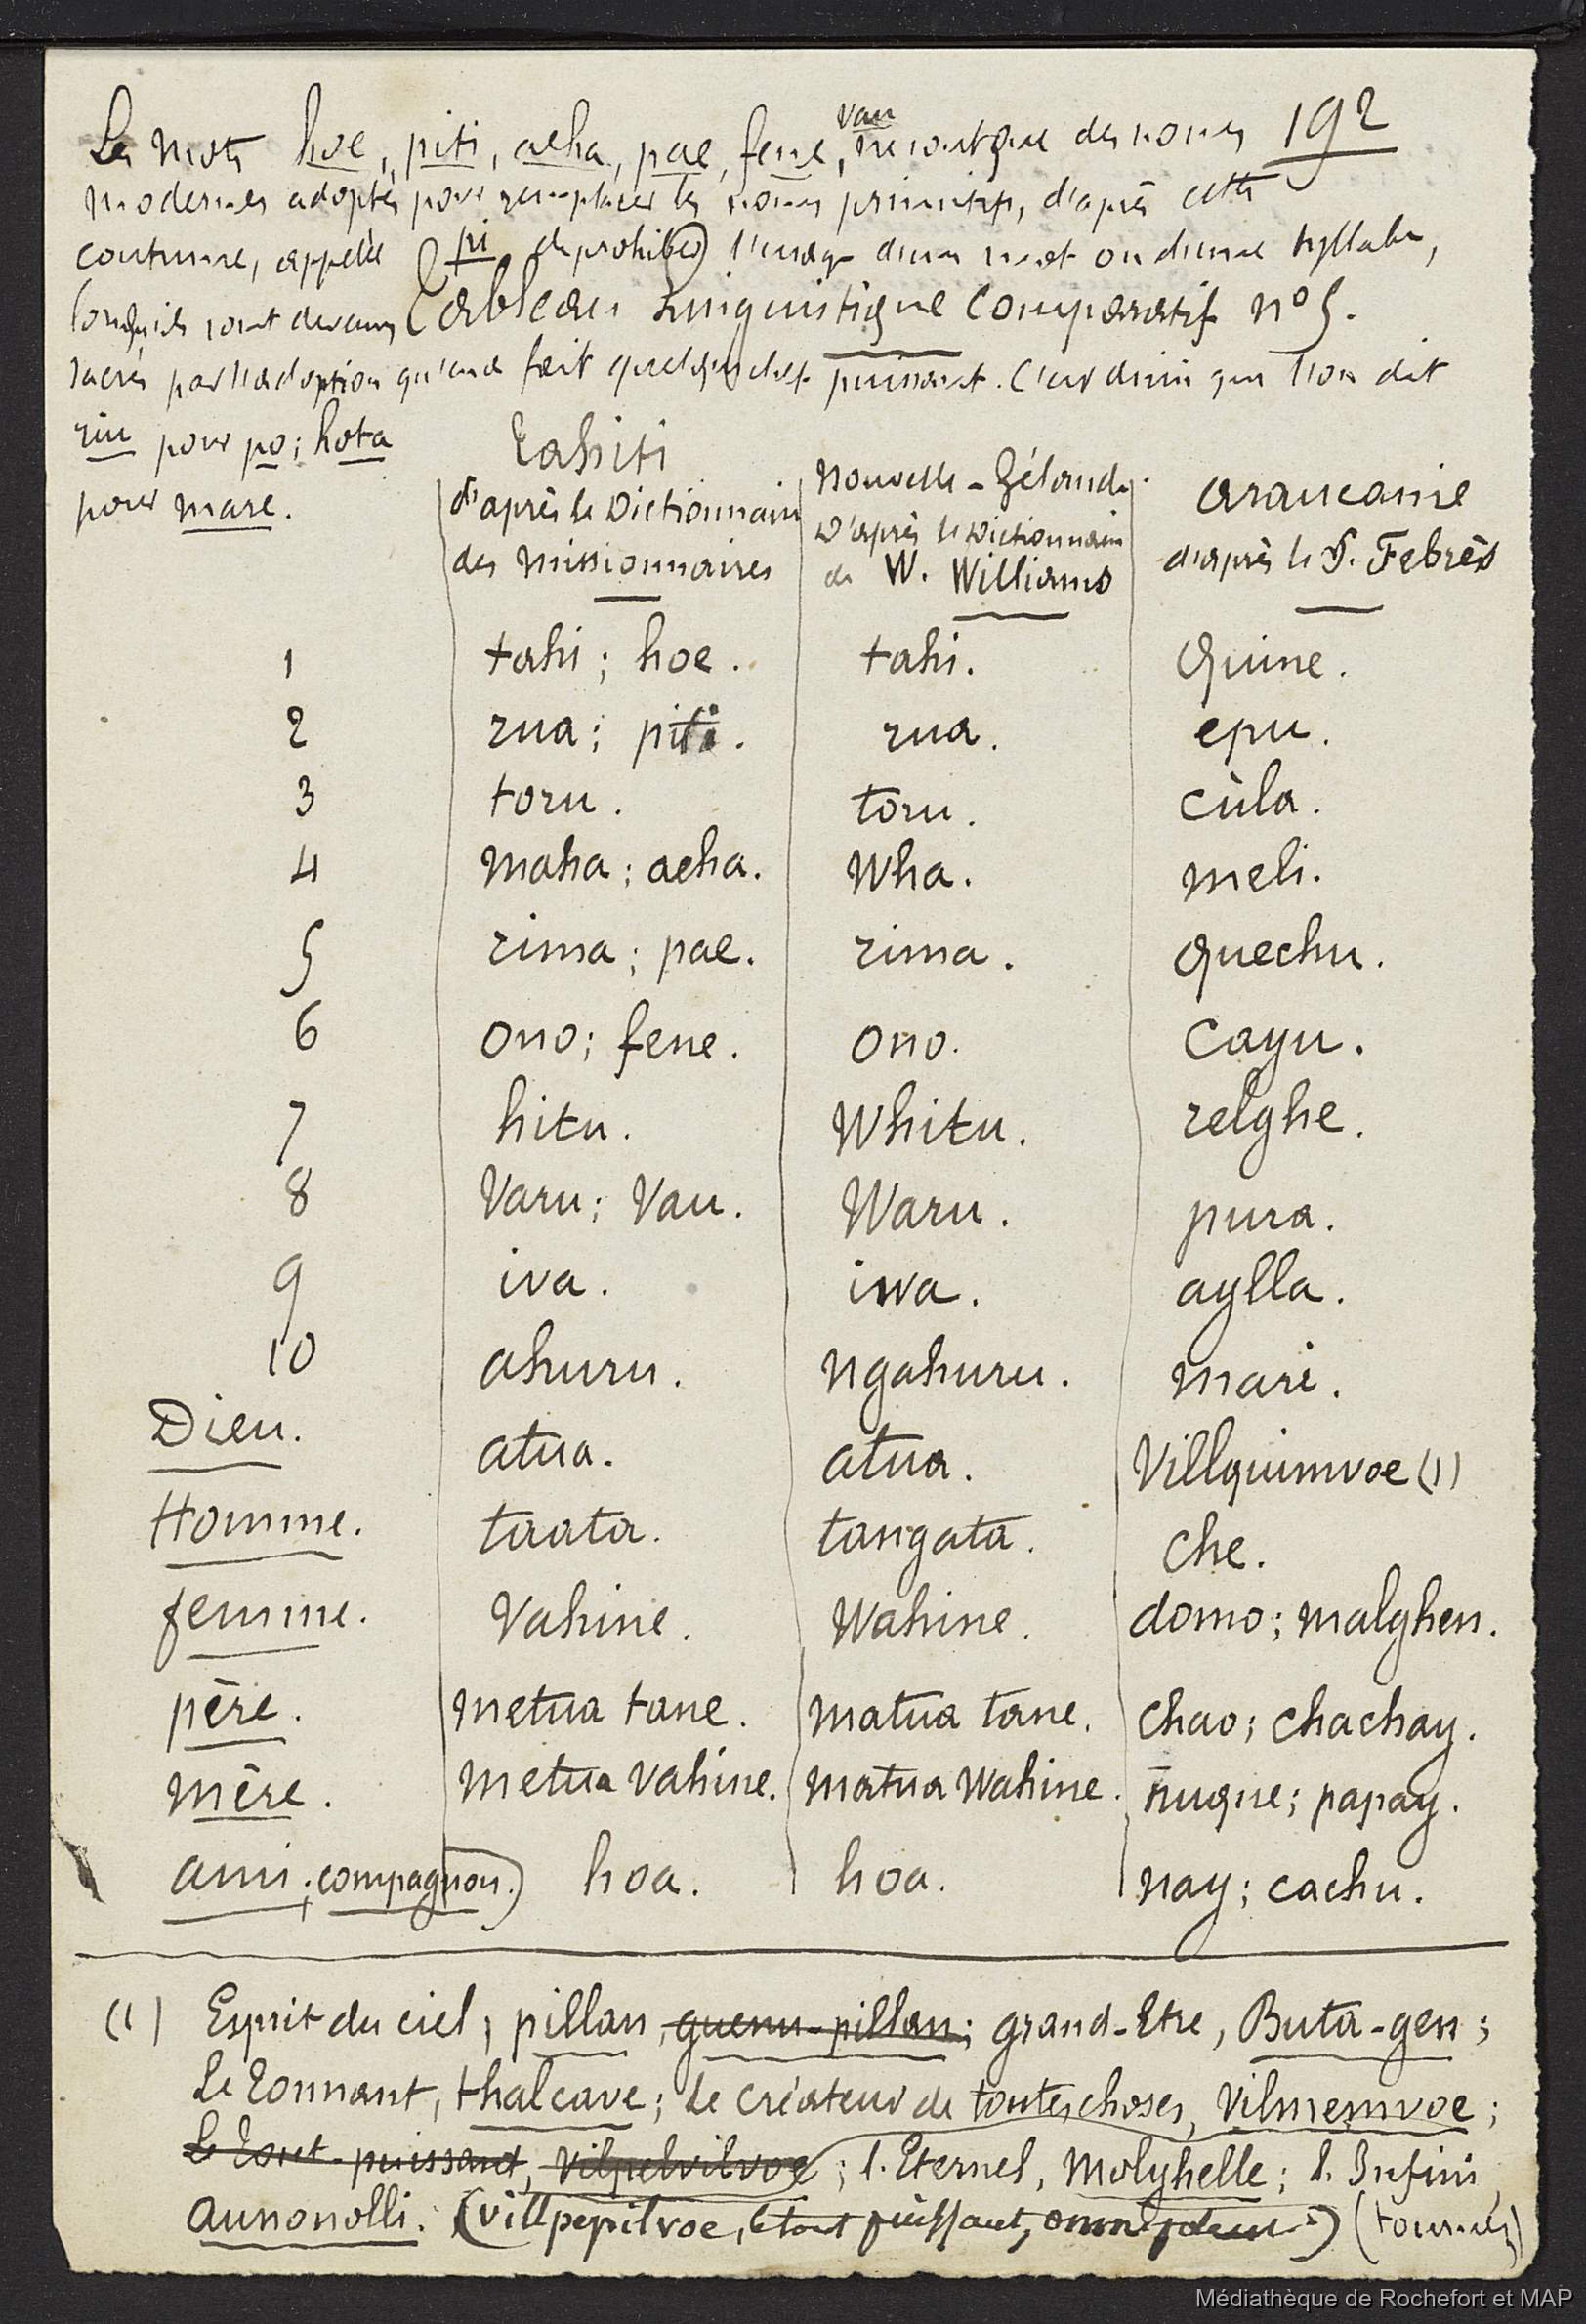 Les mots hoe, piti, aeha, pae, fene, vau ne sont que des noms 192
modernes adoptés pour remplacer les noms primitifs, d'après cette
coutume, appelée (pi, de prohiber) l'usage d'un mot ou d'une syllabe,
lorsqu'ils sont devenus
Tableau Linguistique Comparatif n° 5.
sacrés par l'adoption qu'en a fait quelque chef puissant. C'est ainsi que l'on dit
rui pour po; hota
pour mare.
Tahiti
d'après le Dictionnaire
des Missionnaires
Nouvelle-Zélande
D'après le Dictionnaire
de W. Williams
Araucanie
d'après le P. Febrès
1 tahi; hoe. tahi. Quine.
2 rua; piti. rua. epu.
3 toru. toru. cùla.
4 Maha; aeha. Wha. meli.
5 rima; pae. rima. Quechu.
6 ono; fene. ono. Cayu.
7 hitu. Whitu. relghe.
8 Varu; Vau. Waru. pura.
9 iva. iwa. aylla.
10 ahuru. Ngahuru. mari.
Dieu. atua. atua. Villquimvoe (1)
Homme. taata. tangata. Che.
femme. Vahine. Wahine. domo; malghen.
père. Metua tane. Matua tane. Chao; Chachay.
Mère. Metua Vahine. Matua Wahine. ñuque; papay.
ami; compagnon.) hoa. hoa. nay; cachu.
(1) Esprit du ciel, pillan, guenu-pillan; grand-Etre, Buta-gen;
Le Tonnant, thalcave; Le Créateur de toutes choses, Vilmemvoe;
Le Tout-puissant, Vilpelvilvoe; l'Eternel, Molghelle; l'Infini,
Aunonolli. (villpepilvoe, le tout puissant,
Médiathèque de Rochefort et MAP